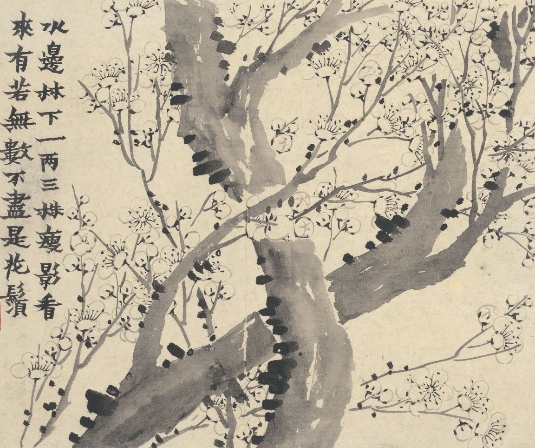 水邊林下一兩三株瘦影看
來有若無數不盡是花鬚